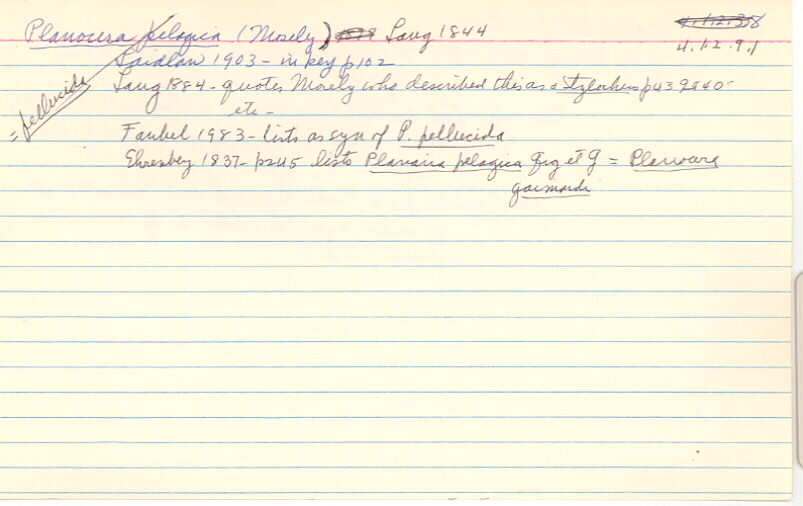 Planocera pelagica (Mosely) Lang 1844
4.1.2.9.1
Laidlaw 1903 - in key p102
= pellucida
Lang 1884 - quotes Mosely who described this as a Stylochus p439 440
etc -
Faubel 1983 - lists as syn of P. pellucida
Ehrenberg 1837 - p245 lists Planaria pelagica Q et G = Planocera
gaimardi